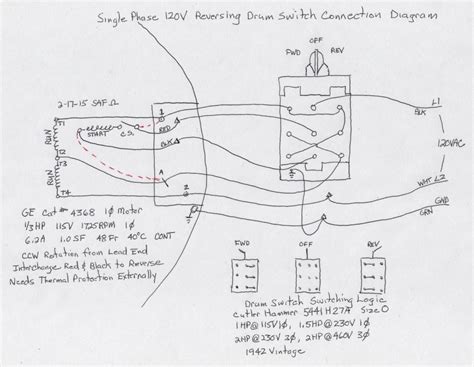 Single Phase 120V Reversing Drum Switch Connection Diagram
OFF
FWD
REV
2-17-15 SAF Ω
T1
RUN
START
C.S.
T2
T3
RUN
T4
1
RED
BLK
A
2
BLK
L1
120VAC
WHT L2
GND
GRN
GE Cat# 4368 1Ø Motor
1/3HP 115V 1725RPM 1Ø
6.2A 1.0 SF 48Fr 40°C CONT
CCW Rotation from Lead End
Interchange Red & Black to Reverse
Needs Thermal Protection Externally
FWD
OFF
REV
Drum Switch Switching Logic
Cutler Hammer 5441H27A Size 0
1HP@115V1Ø, 1.5HP@230V 1Ø
2HP@230V 3Ø, 2HP@460V 3Ø
1942 Vintage